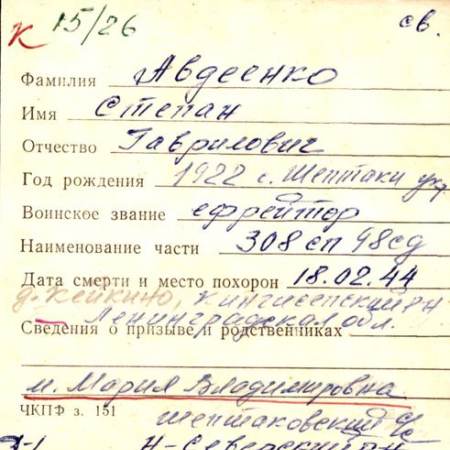 К 15/26 св.
Фамилия Авдеенко
Имя Степан
Отчество Гаврилович
Год рождения 1922 с. Шептаки
Воинское звание ефрейтор
Наименование части 308 сп 98 сд
Дата смерти и место похорон 18.02.44
д. Кейкино, Кингисеппский р-н
Ленинградская обл.
Сведения о призыве и родственниках
м. Мария Владимировна
ЧКПФ з. 151 Шептаковский с/с
Н-Северский р-н